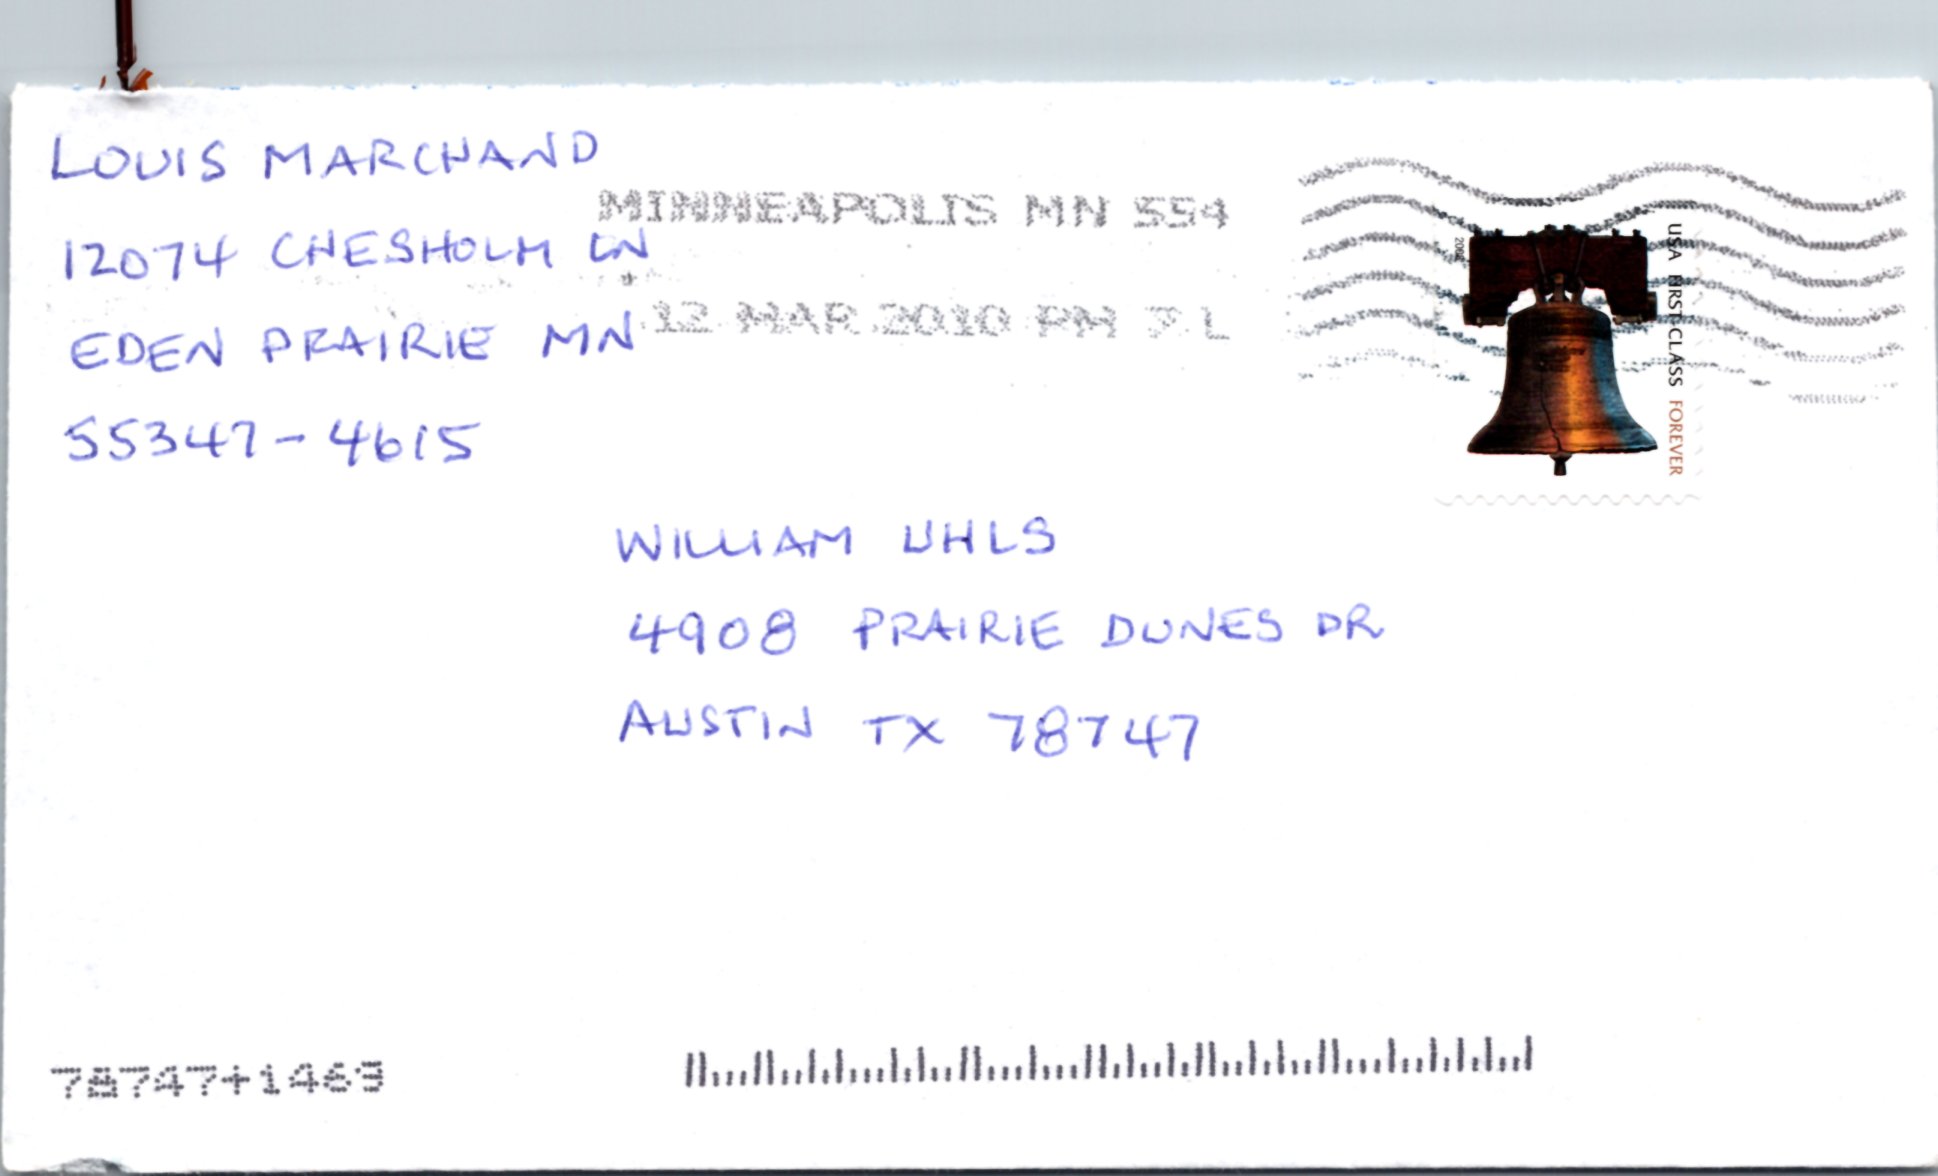 LOUIS MARCHAND
12074 CHESHOLM LN
EDEN PRAIRIE MN
55347-4615
MINNEAPOLIS MN 554
12 MAR 2010 PM 7 L
USA FIRST-CLASS FOREVER
WILLIAM UHLS
4908 PRAIRIE DUNES DR
AUSTIN TX 78747
78747+1463